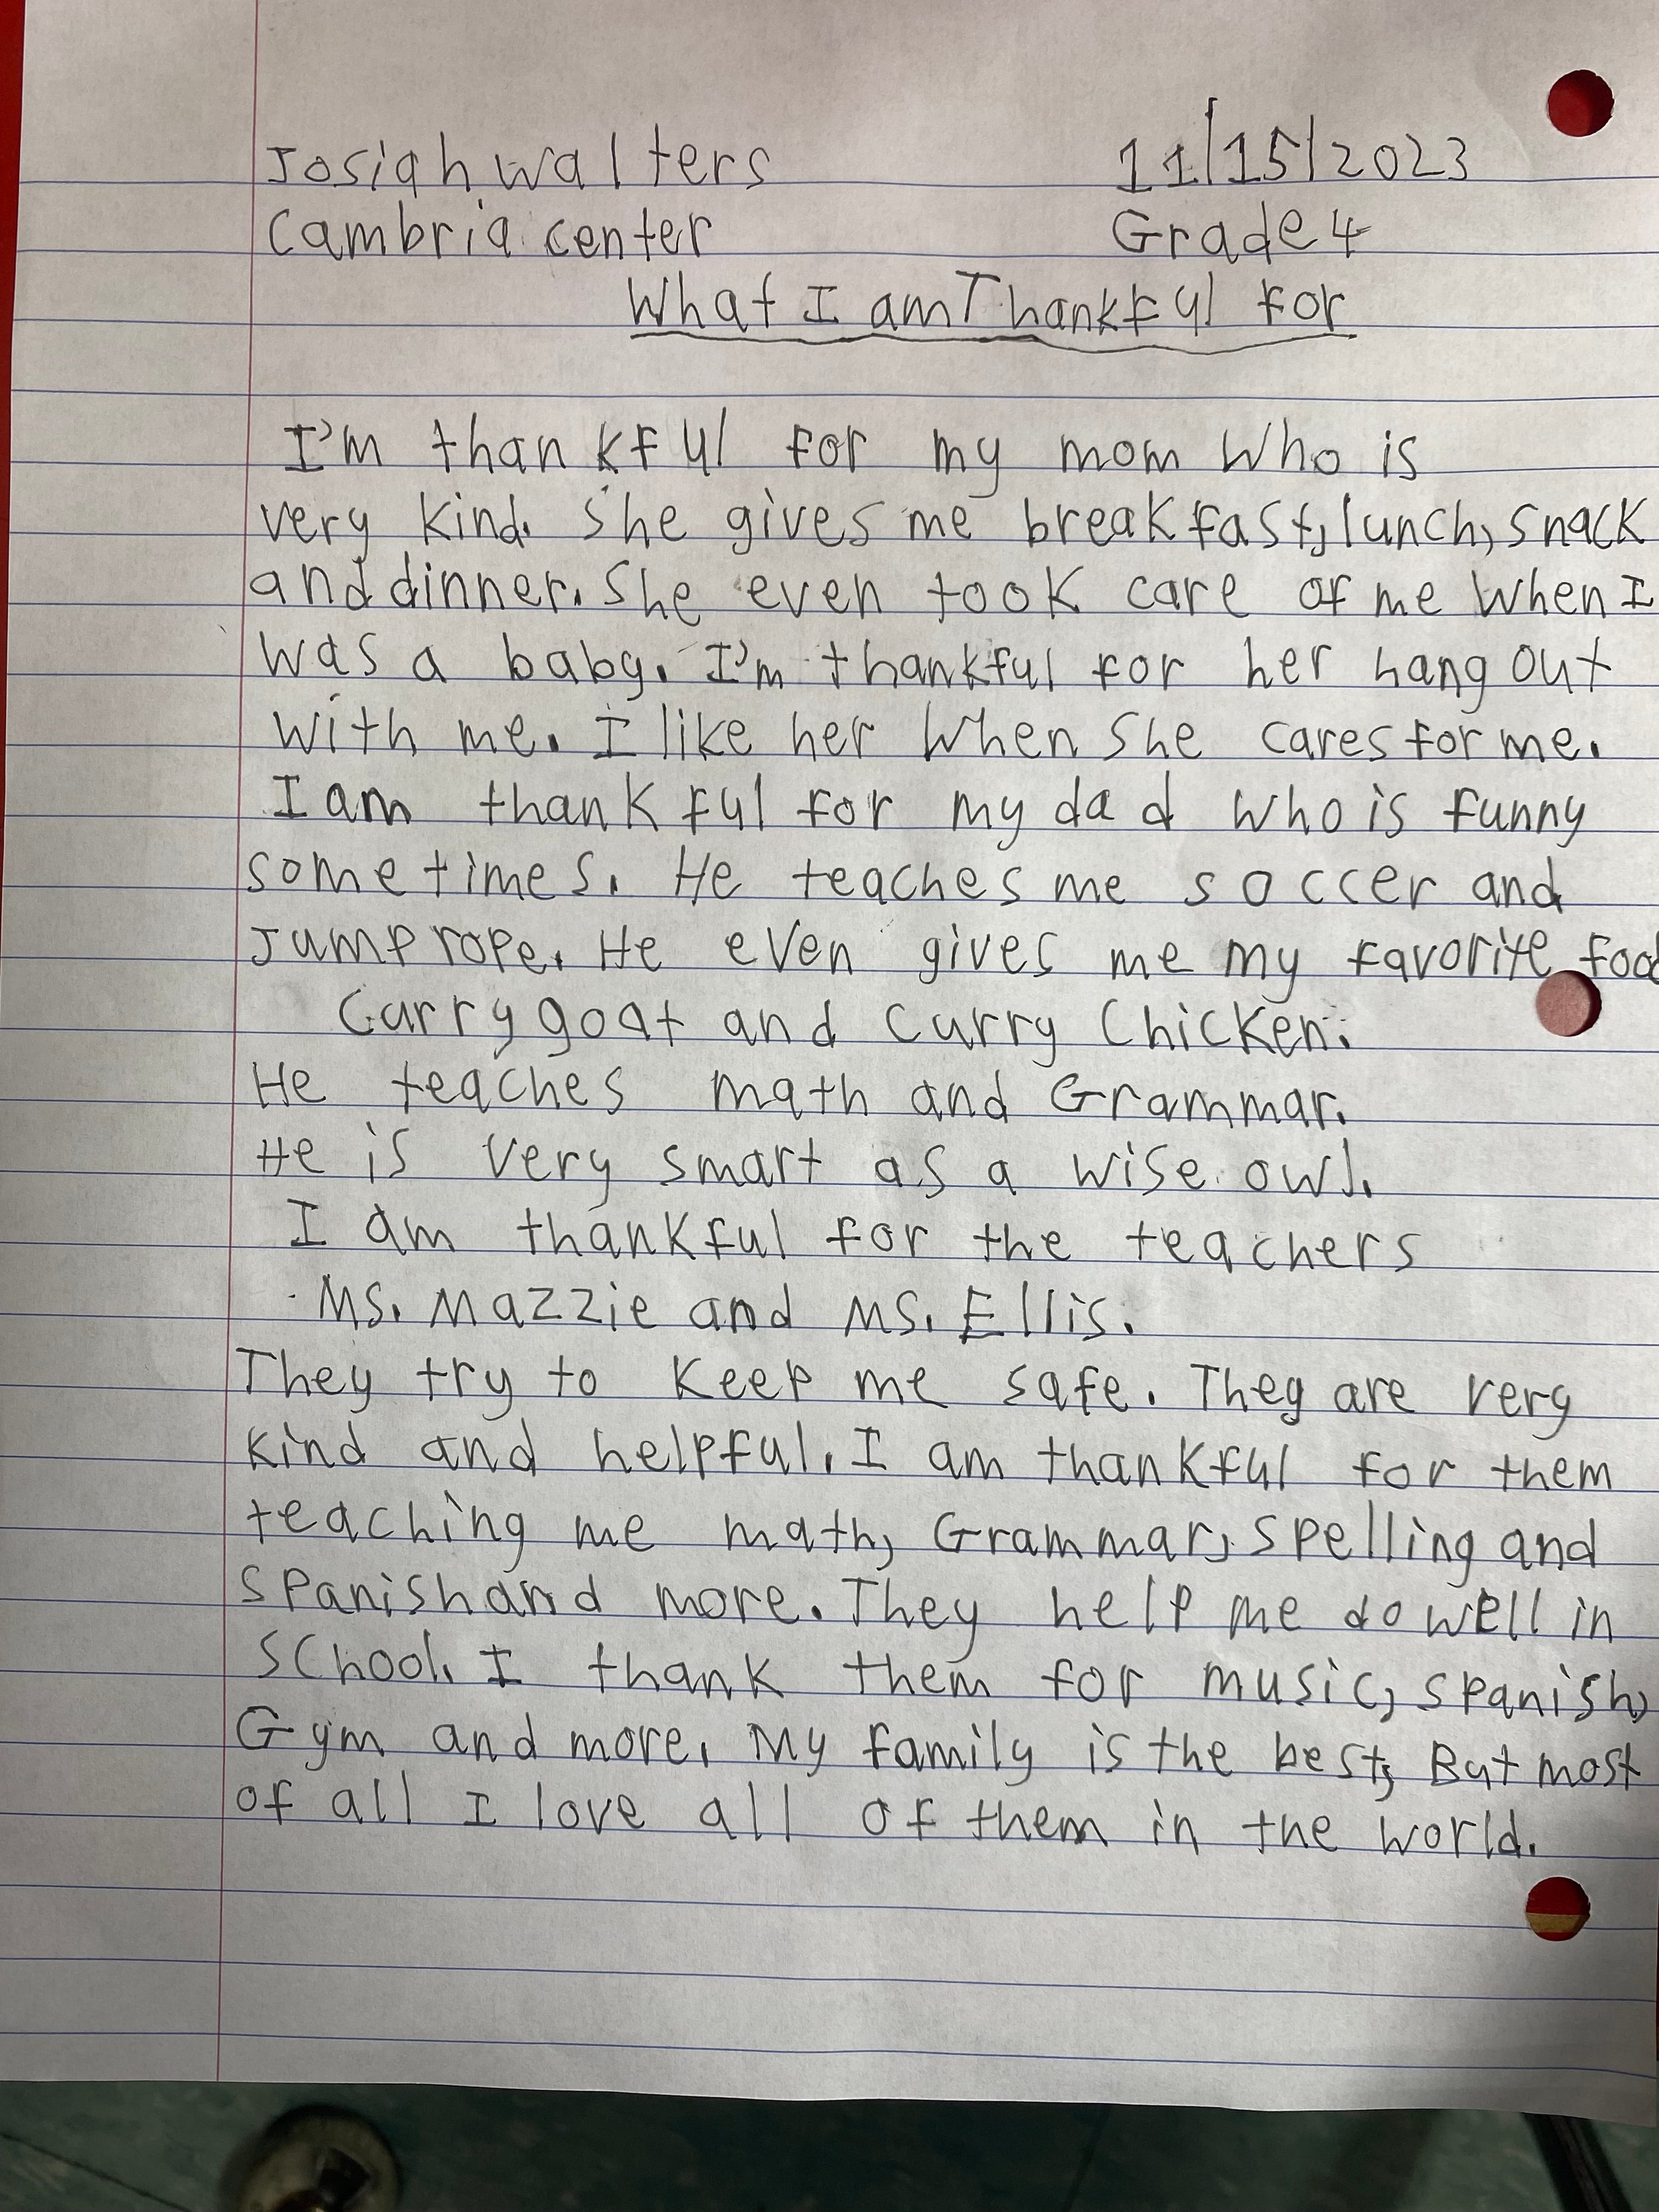 Josiah walters 11/15/2023
Cambria center Grade 4
What I am Thankful for
I'm thankful for my mom who is
very kind. She gives me breakfast, lunch, snack
and dinner. She even took care of me when I
was a baby. I'm thankful for her hang out
with me. I like her when she cares for me.
I am thankful for my dad who is funny
sometimes. He teaches me soccer and
Jump rope. He even gives me my favorite food
Curry goat and curry Chicken.
He teaches math and Grammar.
He is very smart as a wise owl.
I am thankful for the teachers
Ms. Mazzie and Ms. Ellis.
They try to keep me safe. They are very
kind and helpful. I am thankful for them
teaching me math, Grammar, spelling and
spanish and more. They help me do well in
school. I thank them for music, spanish,
Gym and more. My family is the best, But most
of all I love all of them in the world.